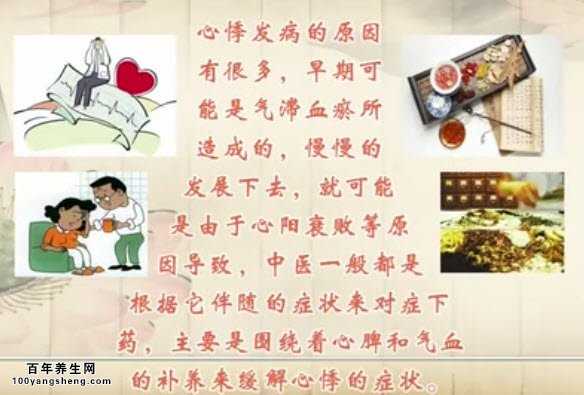 心悸发病的原因
有很多，早期可
能是气滞血瘀所
造成的，慢慢的
发展下去，就可能
是由于心阳衰败等原
因导致，中医一般都是
根据它伴随的症状来对症下
药，主要是围绕着心脾和气血
的补养来缓解心悸的症状。
百年养生网
100yangsheng.com